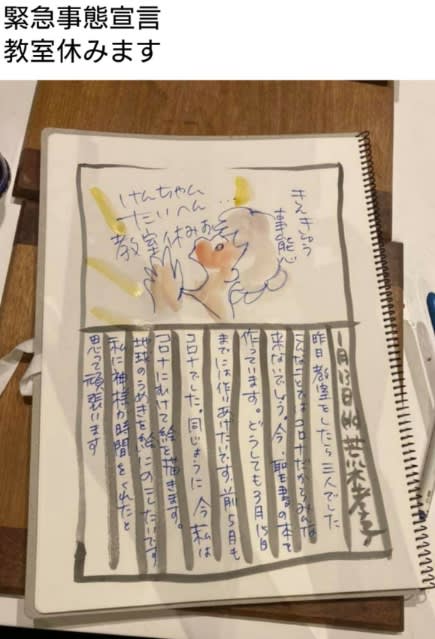 緊急事態宣言
教室休みます
きんきゅう
事態
けんちゃん
たいへん…
教室休み
1月13日
昨日教室をしたら三人でした
こんなことではコロナだからみんな
来ないでしょう。今、聖書の本を
作っています。どうしても3月15日
までには作りあげたいです。前5月も
コロナでした。同じように今私は
コロナにむけて絵を描きます。
地球のうめきを絵にのこしたいです。
私に神様が時間をくれたと
思って頑張います